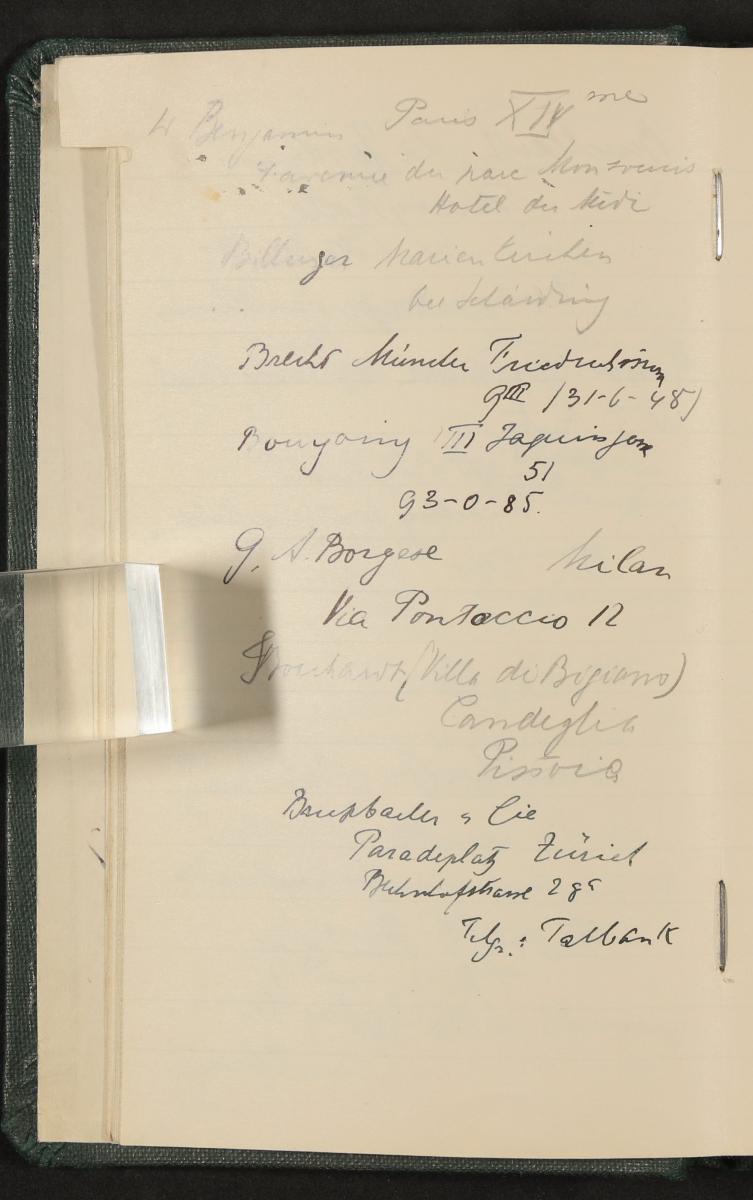 W Benjamin Paris XIV me
4 avenue du parc Montsouris
Hotel du Midi
Billinger Marienkirchen
bei Schärding
Brecht München
9 III (31-6-48)
III 51
93-0-85.
G. A. Borgese Milan
Via Pontaccio 12
(Villa di Bigiano)
Candeglia
Pistoia
Brupbacher & Cie
Paradeplatz Zürich
Bahnhofstrasse
Telgr.: Talbank